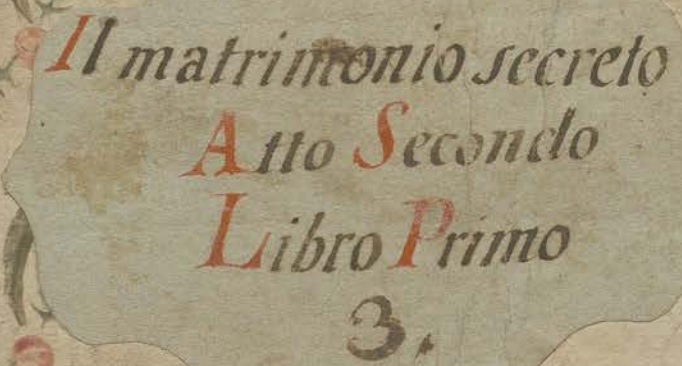 Il matrimonio secreto
Atto Secondo
Libro Primo
3.